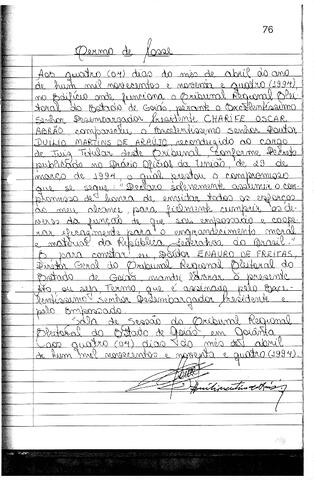 76
Termo de Posse
Aos quatro (04) dias do mês de abril do ano
de hum mil novecentos e noventa e quatro (1994)
no Edifício onde funciona o Tribunal Regional Elei-
toral do Estado de Goiás, perante o Excelentíssimo
Senhor Desembargador Presidente CHARIFE OSCAR
ABRÃO compareceu o Excelentíssimo Senhor Doutor
DUILIO MARTINS DE ARAUJO, reconduzido ao cargo
de Juiz Titular deste Tribunal, conforme Decreto
publicado no Diário Oficial da União de 29 de
março de 1994, o qual prestou o compromisso
que se segue: "Declaro solenemente assumir o com-
promisso de honra de envidar todos os esforços
ao meu alcance para fielmente cumprir os de-
veres da função de que sou empossado e coope-
rar eficazmente para o engrandecimento moral
e material da República Federativa do Brasil."
E para constar eu Doutor ENAURO DE FREITAS,
Diretor Geral do Tribunal Regional Eleitoral do
Estado de Goiás mandei lavrar o presente
que é assinado pelo Exce-
lentíssimo Senhor Desembargador Presidente e
pelo Empossado.
Sala de Sessão do Tribunal Regional
Eleitoral do Estado de Goiás em Goiânia
aos quatro (04) dias do mês de abril
de hum mil novecentos e noventa e quatro (1994).